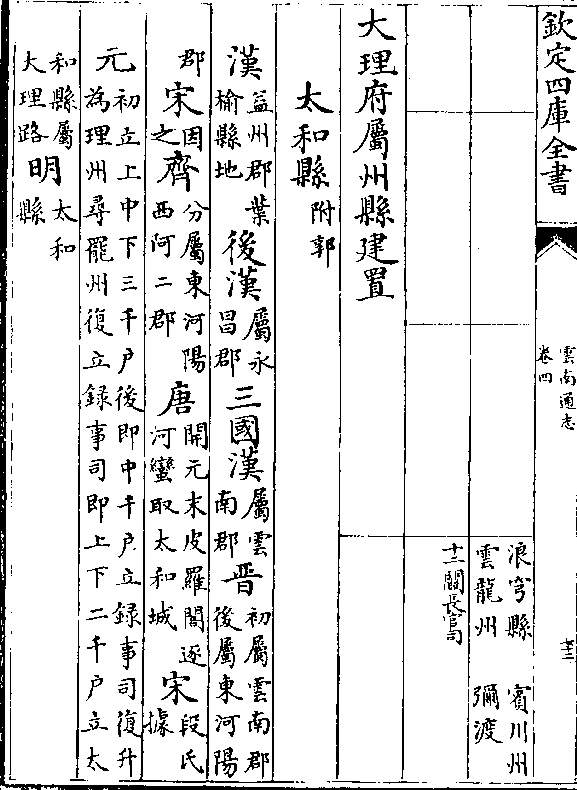 欽定四庫全書
雲南通志
卷四
浪穹縣 賓川州
雲龍州 彌渡
十二關長官司
大理府屬州縣建置
太和縣附郭
漢益州郡葉榆縣地後漢屬永昌郡三國漢屬雲南郡晉初屬雲南郡後屬東河陽
郡宋因之齊分屬東河陽西阿二郡唐開元末皮羅閣逐河蠻取太和城宋段氏據
元初立上中下三千户後即中千户立録事司復升為理州尋罷州復立録事司即上下二千户立太
和縣屬大理路明太和縣